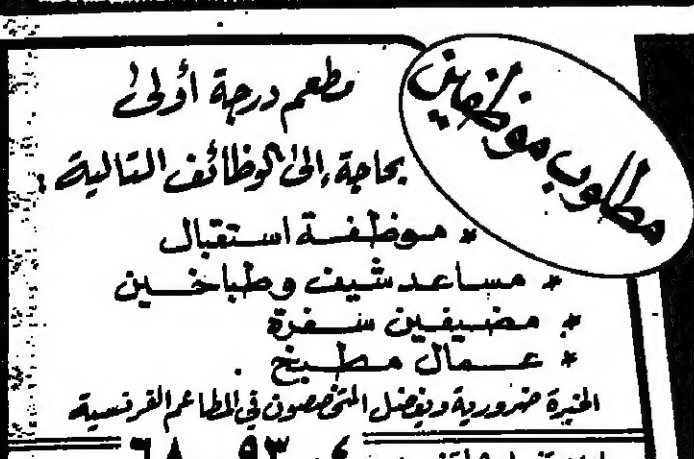 مطلوب موظفين
مطعم درجة أولى
بحاجة إلى الوظائف التالية :
* موظفة استقبال
* مساعد شيف وطباخين
* مضيفين سفرة
* عمال مطبخ
الخبرة ضرورية ويفضل المتخصصون في المطاعم الفرنسية